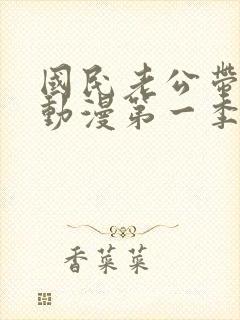 國民老公帶
動漫第一季
香菜菜